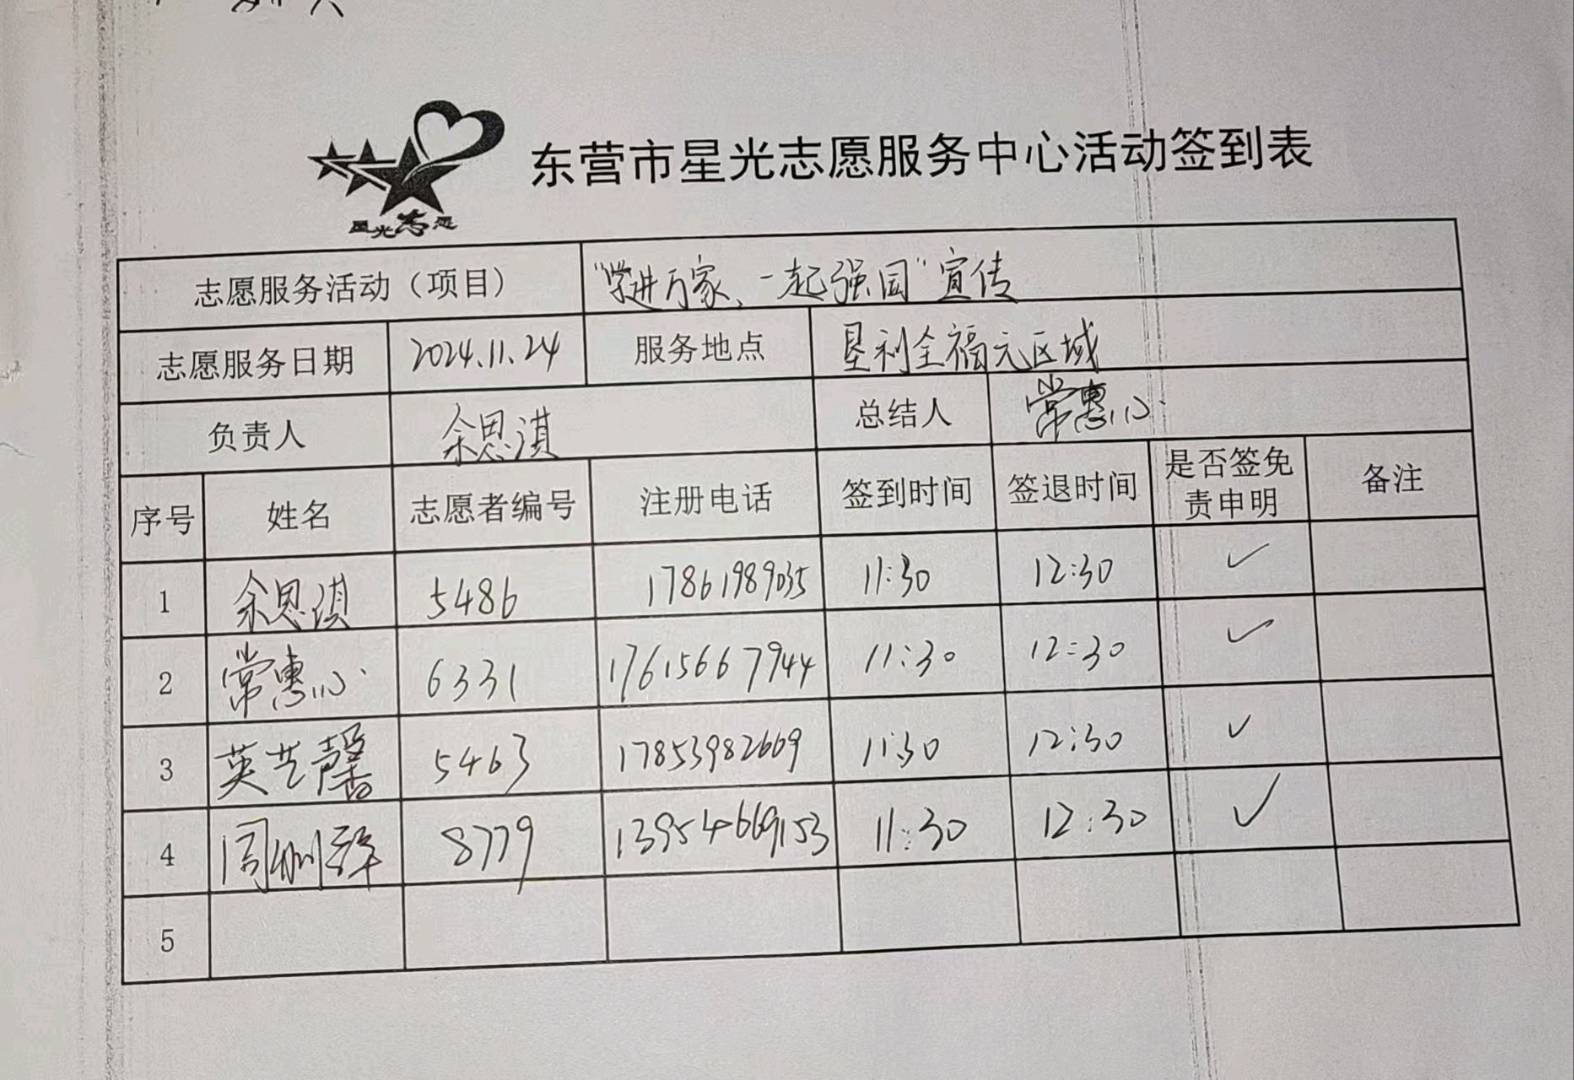 东营市星光志愿服务中心活动签到表
星光志愿
志愿服务活动（项目） “学进万家、一起强国”宣传
志愿服务日期 2024.11.24 服务地点 垦利全福元区域
负责人 余思淇 总结人 常惠心
序号 姓名 志愿者编号 注册电话 签到时间 签退时间 是否签免责申明 备注
1 余思淇 5486 17861989035 11:30 12:30 ✓
2 常惠心 6331 17615667944 11:30 12:30 ✓
3 英艺馨 5463 17853982669 11:30 12:30 ✓
4 周 8779 13954669153 11:30 12:30 ✓
5